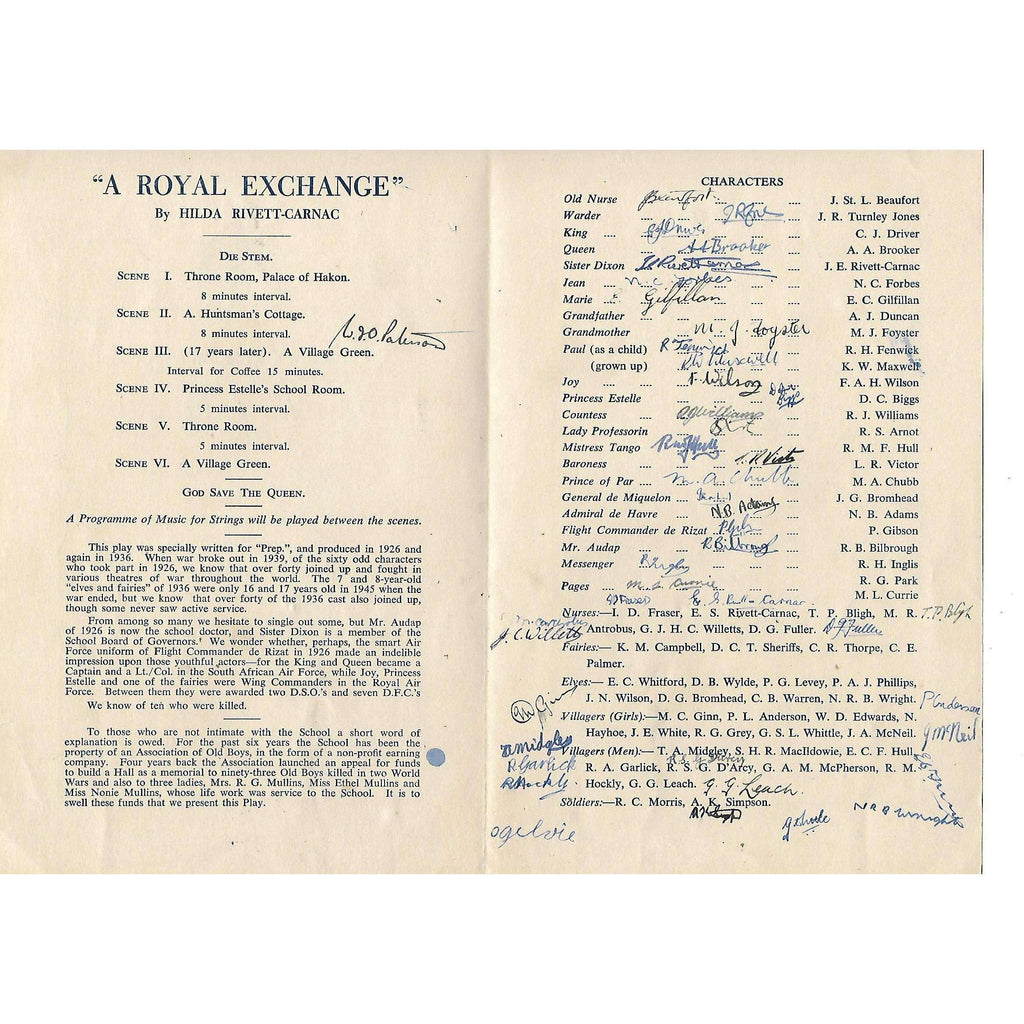 "A ROYAL EXCHANGE"
By HILDA RIVETT-CARNAC
DIE STEM.
SCENE I. Throne Room, Palace of Hakon.
8 minutes interval.
SCENE II. A. Huntsman's Cottage.
8 minutes interval.
SCENE III. (17 years later). A Village Green.
Interval for Coffee 15 minutes.
SCENE IV. Princess Estelle's School Room.
5 minutes interval.
SCENE V. Throne Room.
5 minutes interval.
SCENE VI. A Village Green.
GOD SAVE THE QUEEN.
A Programme of Music for Strings will be played between the scenes.
This play was specially written for "Prep.", and produced in 1926 and
again in 1936. When war broke out in 1939, of the sixty odd characters
who took part in 1926, we know that over forty joined up and fought in
various theatres of war throughout the world. The 7 and 8-year-old
"elves and fairies" of 1936 were only 16 and 17 years old in 1945 when the
war ended, but we know that over forty of the 1936 cast also joined up,
though some never saw active service.
From among so many we hesitate to single out some, but Mr. Audap
of 1926 is now the school doctor, and Sister Dixon is a member of the
School Board of Governors.! We wonder whether, perhaps, the smart Air
Force uniform of Flight Commander de Rizat in 1926 made an indelible
impression upon those youthful actors—for the King and Queen became a
Captain and a Lt./Col. in the South African Air Force, while Joy, Princess
Estelle and one of the fairies were Wing Commanders in the Royal Air
Force. Between them they were awarded two D.S.O.'s and seven D.F.C.'s
We know of ten who were killed.
To those who are not intimate with the School a short word of
explanation is owed. For the past six years the School has been the
property of an Association of Old Boys, in the form of a non-profit earning
company. Four years back the Association launched an appeal for funds
to build a Hall as a memorial to ninety-three Old Boys killed in two World
Wars and also to three ladies, Mrs. R. G. Mullins, Miss Ethel Mullins and
Miss Nonie Mullins, whose life work was service to the School. It is to
swell these funds that we present this Play.
CHARACTERS
Old Nurse Beaufort .... J. St. L. Beaufort
Warder .... .... .... J. R. Turnley Jones
King .... CJDriver .... .... C. J. Driver
Queen .... AABrooker .... A. A. Brooker
Sister Dixon JE Rivett-Carnac J. E. Rivett-Carnac
Jean .... N. C. Forbes .... N. C. Forbes
Marie E. C. Gilfillan .... E. C. Gilfillan
Grandfather .... .... .... A. J. Duncan
Grandmother .... M. J. Foyster M. J. Foyster
Paul (as a child) R Fenwick .... R. H. Fenwick
(grown up) KW Maxwell .... K. W. Maxwell
Joy .... .... F. Wilson .... F. A. H. Wilson
Princess Estelle .... .... D. C. Biggs
Countess .... RJWilliams .... R. J. Williams
Lady Professorin .... .... R. S. Arnot
Mistress Tango RMFHull .... R. M. F. Hull
Baroness .... L.R.Victor L. R. Victor
Prince of Par .... M. A. Chubb M. A. Chubb
General de Miquelon .... .... J. G. Bromhead
Admiral de Havre .... N.B. Adams N. B. Adams
Flight Commander de Rizat PGibson .... P. Gibson
Mr. Audap .... .... RBilbrough .... R. B. Bilbrough
Messenger .... R Inglis .... .... R. H. Inglis
Pages .... .... .... .... R. G. Park
M. L. Currie
Nurses:—I. D. Fraser, E. S. Rivett-Carnac, T. P. Bligh, M. R. T.P. Bligh
J.C.Willetts Antrobus, G. J. H. C. Willetts, D. G. Fuller. D G Fuller
Fairies:— K. M. Campbell, D. C. T. Sheriffs, C. R. Thorpe, C. E.
Palmer.
Elves:— E. C. Whitford, D. B. Wylde, P. G. Levey, P. A. J. Phillips,
J. N. Wilson, D. G. Bromhead, C. B. Warren, N. R. B. Wright. P Anderson
Villagers (Girls):—M. C. Ginn, P. L. Anderson, W. D. Edwards, N.
Hayhoe, J. E. White, R. G. Grey, G. S. L. Whittle, J. A. McNeil. J McNeil
Midgley Villagers (Men):— T. A. Midgley, S. H. R. MacIldowie, E. C. F. Hull,
R Garlick R. A. Garlick, R. S. G. D'Arcy, G. A. M. McPherson, R. M.
R Hockly. Hockly, G. G. Leach. G. G. Leach.
Soldiers:— R. C. Morris, A. K. Simpson.
NRBWright
ogilvie